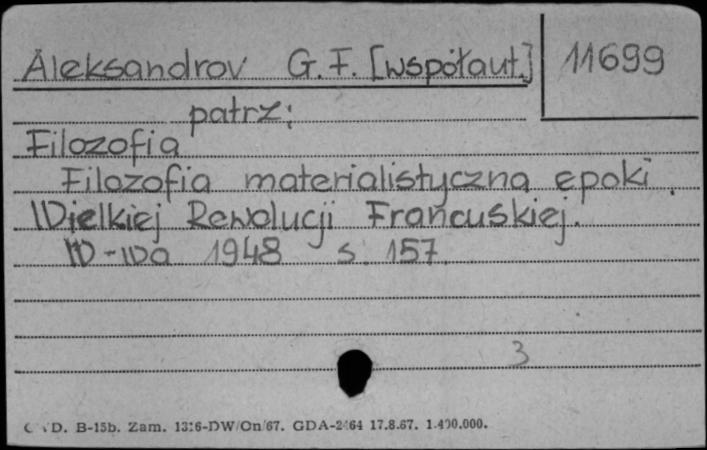 Aleksandrov G. F. [współaut.] 11699
patrz:
Filozofia
Filozofia materialistyczna epoki
Wielkiej Rewolucji Francuskiej.
W-wa 1948 s. 157.
3
D. B-15b. Zam. 1316-DW/On/67. GDA-2464 17.8.67. 1.400.000.